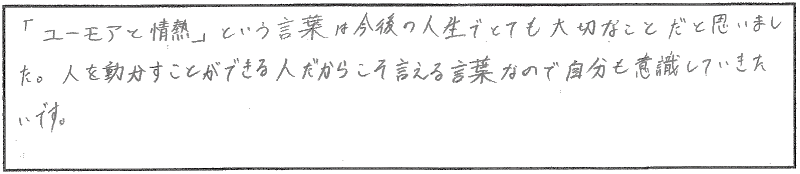 「ユーモアと情熱」という言葉は今後の人生でとても大切なことだと思いまし
た。人を動かすことができる人だからこそ言える言葉なので自分も意識していきた
いです。